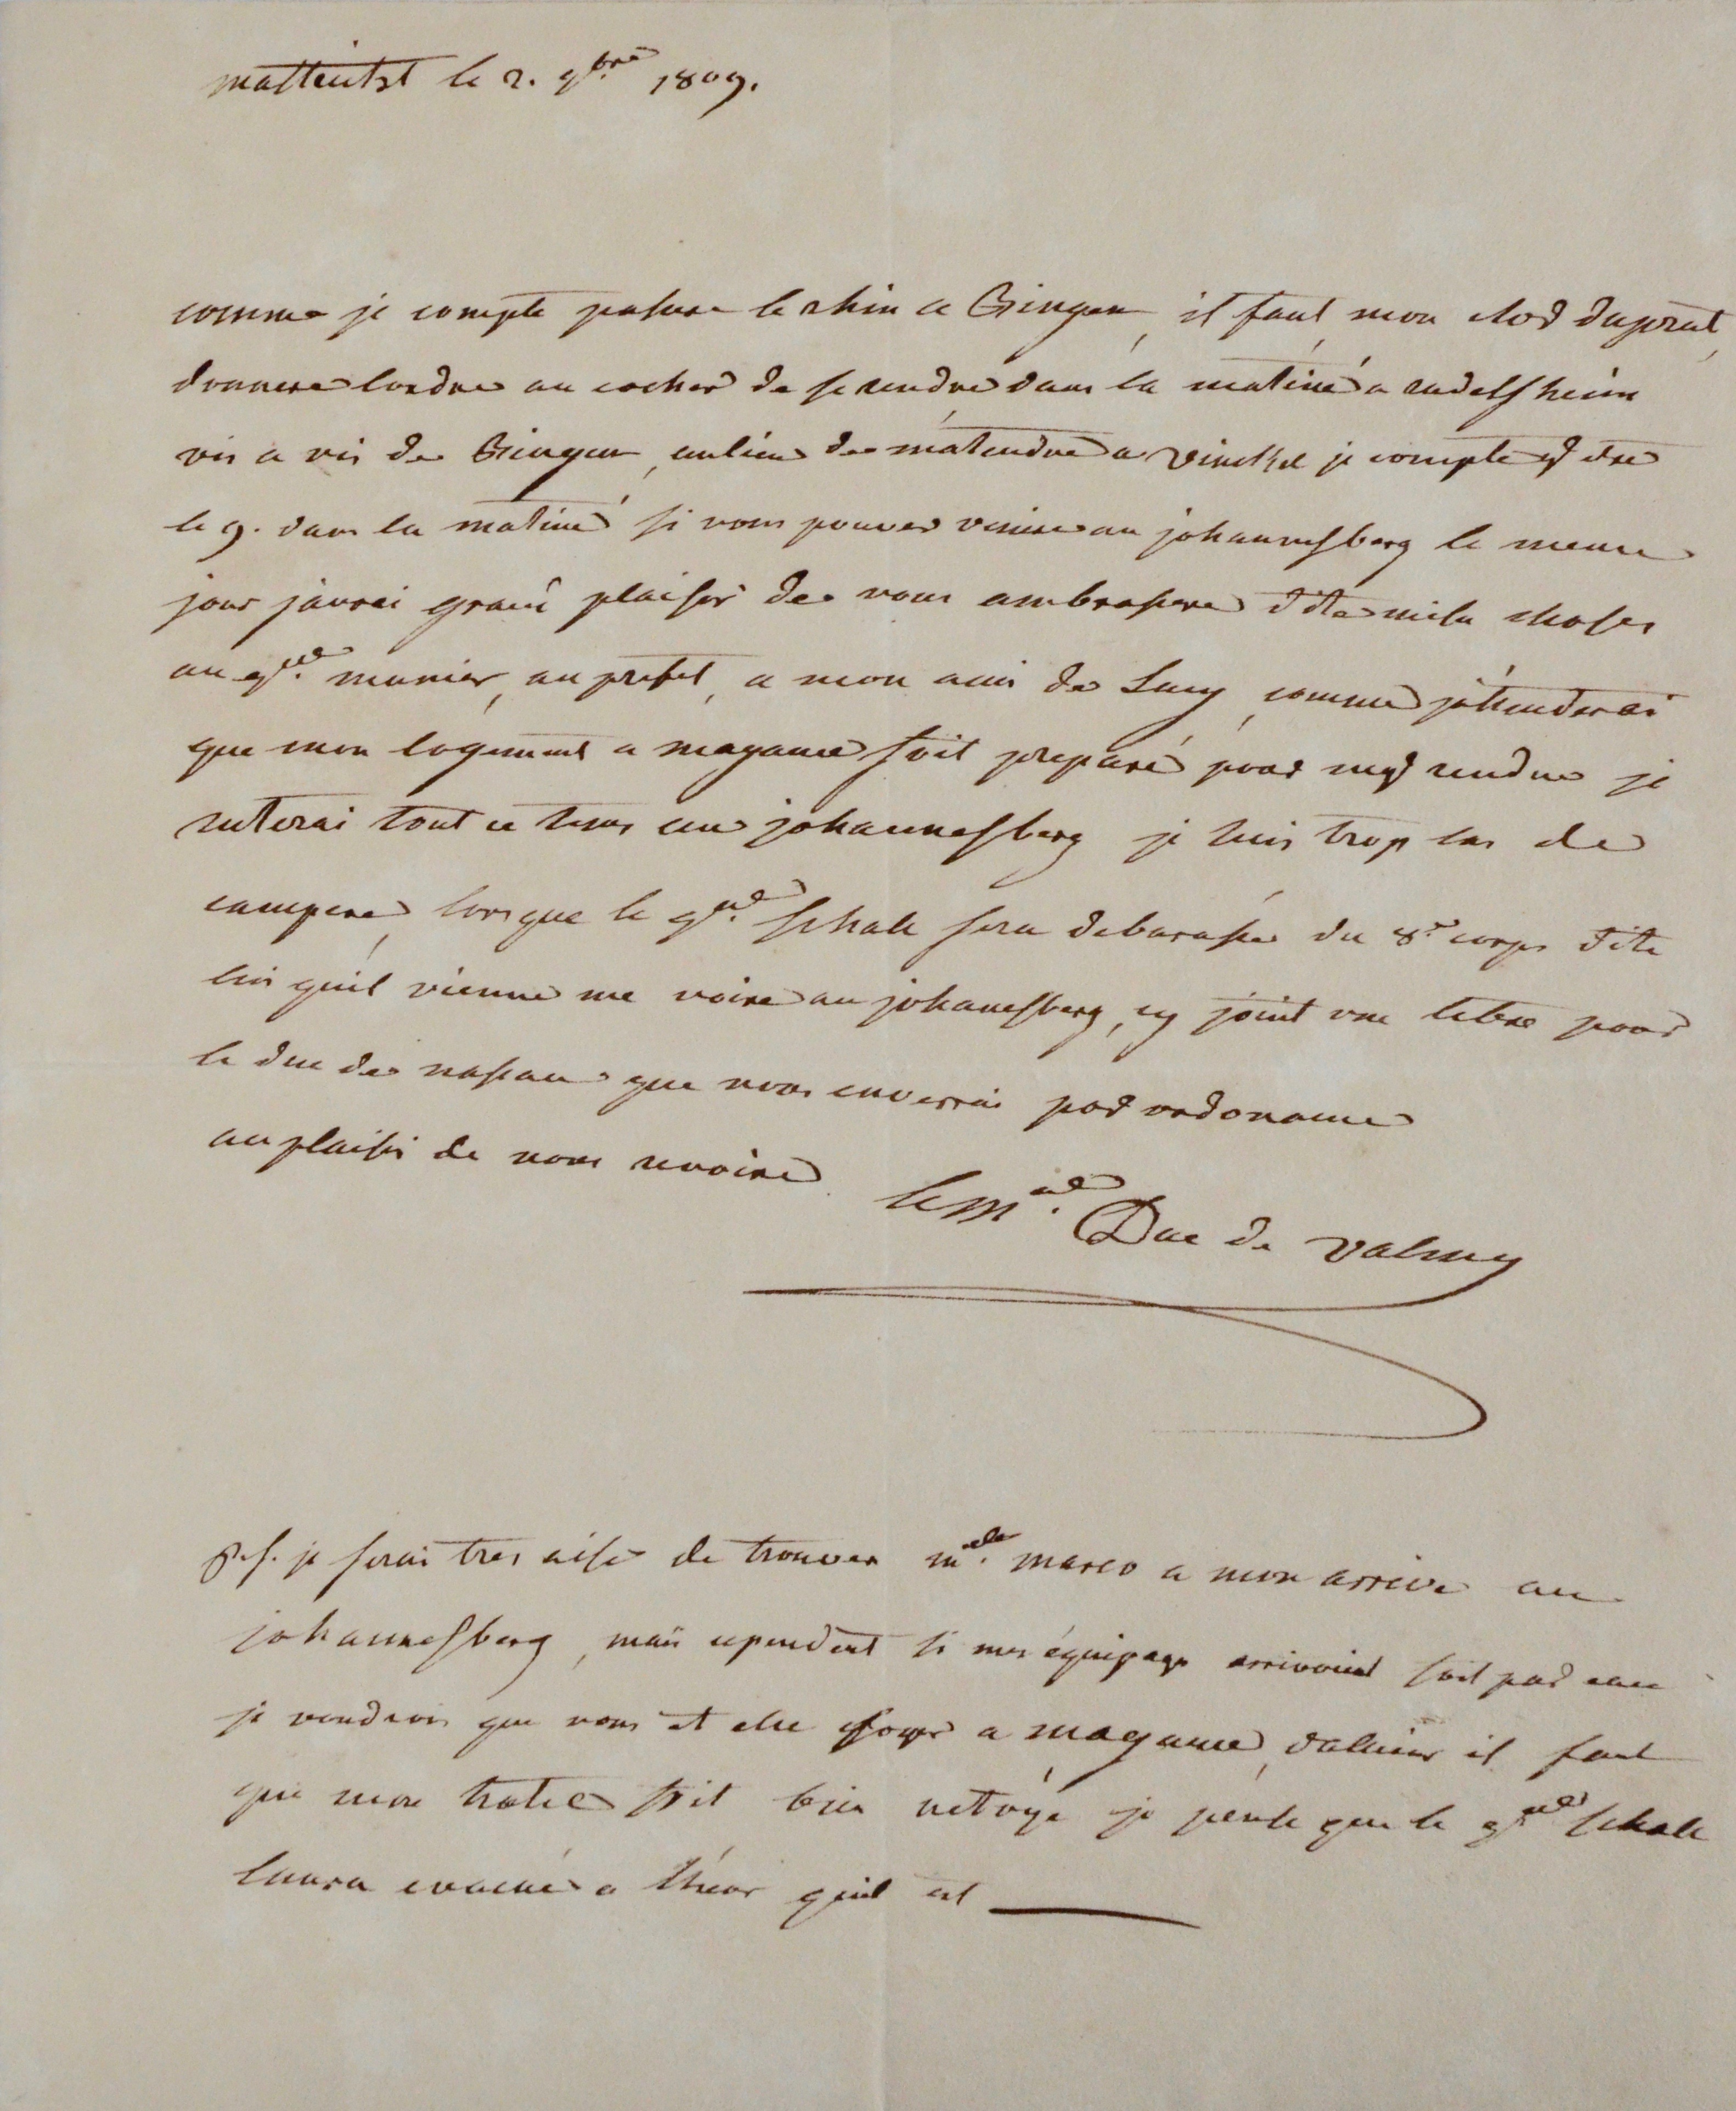 mastricht le 2. 9bre 1809.
comme je compte passere le rhin a Bingen, il faut, mon cher duprat,
donnere lordre au cocher de se rendre dans la matiné a rudelsheim
vis a vis de Bingen, aulieu de matendre a vinckel je compte y etre
le 9. dans la matiné si vous pouvez venire au johannesberg le meme
jour jaurai grand plaisir de vous ambrasere dite mile choses
au gral. munier, au prefet, a mon ami de Lucy, comme jattenderai
que mon logement a mayance soit preparé pour my rendre je
resterai tout ce tems au johannesberg je suis trop las de
campere, lorsque le gral. schale sera debarassé du 8e corps dite
lui quil vienne me voire au johanesberg, cy joint une lettre pour
le duc de nassau que vous enverrai par ordonance
au plaisir de vous revoire
le mal. Duc de valmy
P.s. je serai tres aise de trouver mde. marco a mon arrive au
johannesberg, mais cependent si mes équipage arrivoient soit par eau
je voudrois que vous et elle soyer a mayance, dalieur il faut
que mon hotel soit bien netoyé je pense que le gral schale
laura evacué a lheur quil est